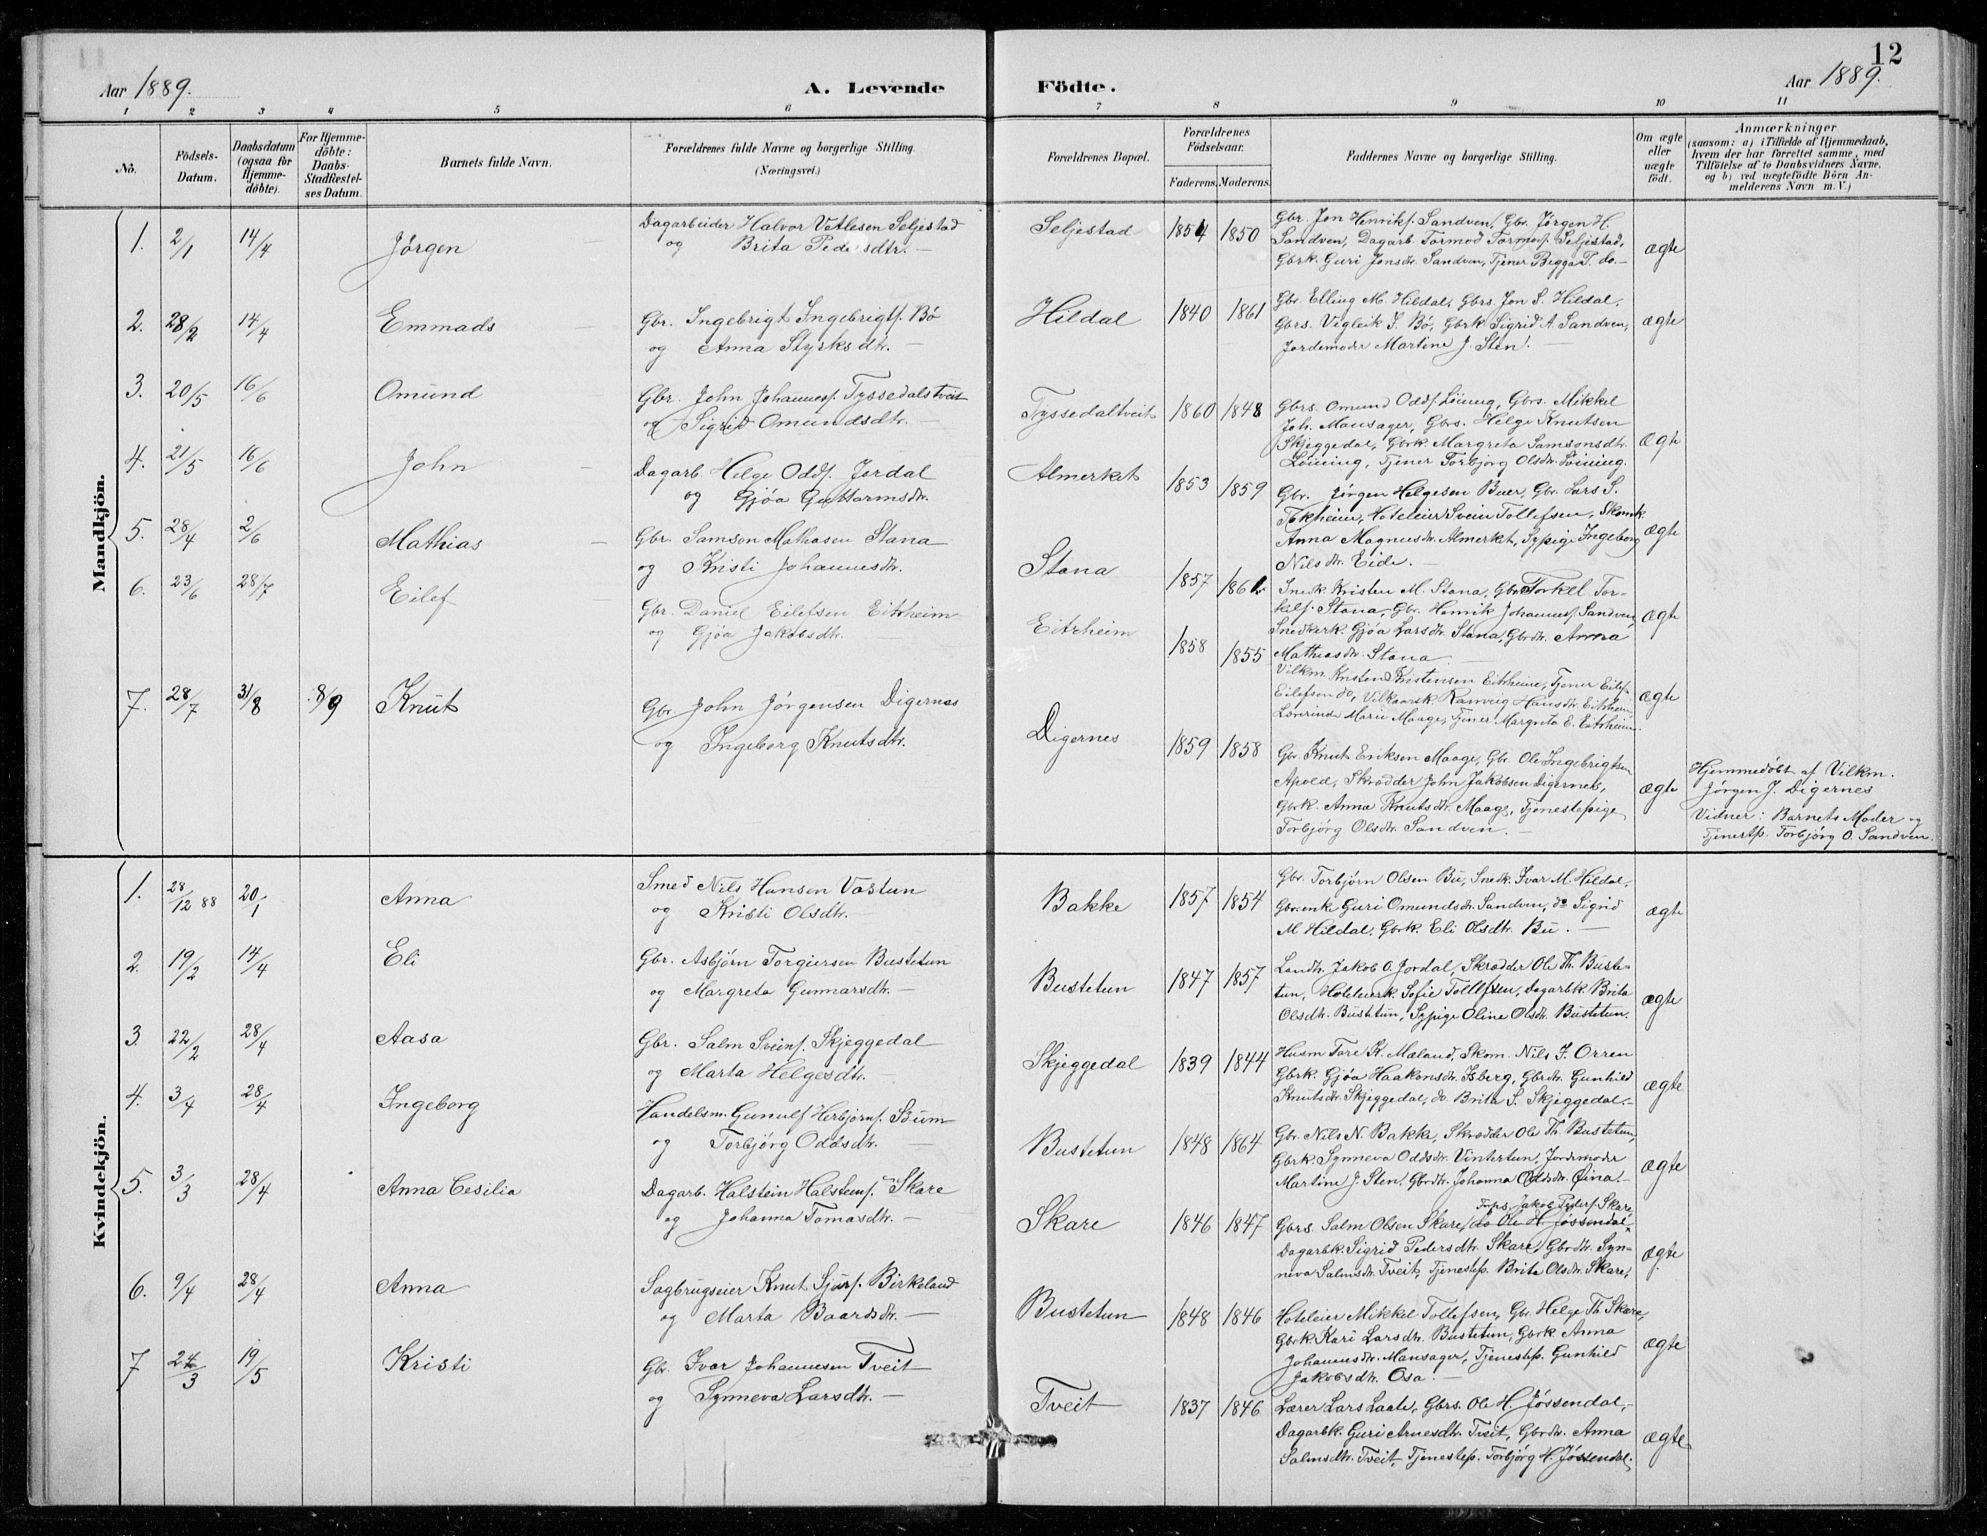 12
Aar 1889.
A. Levende
Födte.
Aar 1889.
1 2 3 4 5 6 7 8 9 10 11
No.
Födsels-
Datum.
Daabsdatum
(ogsaa for
Hjemme-
döbte).
For Hjemme-
döbte:
Daabs-
Stadfæstel-
ses Datum.
Barnets fulde Navn.
Forældrenes fulde Navne og borgerlige Stilling.
(Næringsvei.)
Forældrenes Bopæl.
Forældrenes
Födselsaar.
Faderens. Moderens.
Faddernes Navne og borgerlige Stilling.
Om ægte
eller
uægte
födt.
Anmærkninger
(saasom: a) i Tilfælde af Hjemmedaab,
hvem der har forrettet samme, med
Tilföielse af to Daabsvidners Navne,
og b) ved uægtefödte Börn An-
melderens Navn m. V.)
Mandkjön.
1. 2/1 14/4 Jørgen
Dagarbeider Halvor Vetlesen Seljestad
og Brita Pedersdtr. —
Seljestad 1851 1850
Gbr. Jon Henriks. Sandven, Gbr. Jørgen H.
Sandven, Dagarb. Tormod Tormods. Seljestad,
Gbrk. Guri Jonsdtr. Sandven, Tjener Begga T. do. —
ægte
2. 28/2 14/4 Emmads
Gbr. Ingebrigt Ingebrigts. Bö
og Anna Styrksdtr. —
Hildal 1840 1861
Gbr. Elling M. Hildal, Gbrs. Jon S. Hildal,
Gbrs. Vigleik I. Bö, Gbrk Sigrid A. Sandven,
Jordemoder Martine J. Sten. —
ægte
3. 20/5 16/6 Omund
Gbr. John Johannes. Tyssedalstveit
og Sigrid Omundsdtr. —
Tyssedaltveit 1860 1848
Gbrs. Omund Odds. Löining, Gbrs. Mikkel
Joh. Mansager, Gbrs. Helge Knutsen
Skjeggedal, Gbrk. Margreta Samsonsdtr.
Löining, Tjener Torbjørg Olsdtr.
ægte
4. 21/5 16/6 John
Dagarb. Helge Odds. Jordal
og Gjøa Guttormsdtr.
Almerket 1853 1859
Gbr. Jørgen Helgesen Buer, Gbr. Lars S.
Tokheim, Hoteleier Svein Tollefsen, Skomk.
Anna Magnusdtr. Almerket, Sypige Ingeborg
Nilsdtr. Eide. —
ægte
5. 28/4 2/6 Mathias
Gbr. Samson Mathasen Stana
og Kristi Johannesdtr.
Stana 1857 1861
Snedk Kristen M. Stana, Gbrs Torkel Tor-
kels. Stana, Gbr. Henrik Johannes. Sandven,
Snedkerk. Gjøa Larsdtr. Stana, Gbrdtr. Anna
Mathiasdtr. Stana —
ægte
6. 23/6 28/7 Eilef
Gbr. Daniel Eilefsen Eitrheim
og Gjøa Jakobsdtr. —
Eitrheim 1858 1855
Vilkm. Kristen Kristensen Eitrheim, Tjener Eilef
Eilefsen do, Vilkaarsk Ranveig Hansdtr. Eitrheim
Lærerinde Marie Maage, Tjener Margreta E. Eitrheim.
ægte
7. 28/7 31/8 8/9 Knut
Gbr. John Jørgensen Digernes
og Ingeborg Knutsdtr.
Digernes 1859 1858
Gbr. Knut Eriksen Maage, Gbr. Ole Ingebrigtsen
Apold, Skrædder John Jakobsen Digernes,
Gbrk. Anna Knutsdtr. Maage, Tjenestepige
Torbjörg Olsdtr. Sandven. —
ægte
Hjemmedøbt af Vilkm.
Jørgen J. Digernes
Vidner: Barnets Moder og
Tjenestp. Torbjörg O. Sandven.
Kvindekjön.
1. 28/12 88 20/1 Anna
Smed Nils Hansen Vastun
og Kristi Olsdtr. —
Bakke 1857 1854
Gbr. Torbjörn Olsen Bu, Snedk. Ivar M. Hildal,
Gbr.enke Guri Omundsdtr. Sandven, do Sigrid
M. Hildal, Gbrk. Eli Olsdtr. Bu. —
ægte
2. 19/2 14/4 Eli
Gbr. Asbjörn Torgiersen Bustetun
og Margreta Gunnarsdtr. —
Bustetun 1847 1857
Landh. Jakob O. Jordal, Skrædder Ole Th. Buste-
tun, Hoteleierk. Sofie Tollefsen, Dagarbk Brita
Olsdtr. Bustetun, Sypige Oline Olsdtr. Bustetun.
ægte
3. 22/2 28/4 Aasa
Gbr. Salm Sveins. Skjeggedal
og Marta Helgesdtr. —
Skjeggedal 1839 1844
Husm Tore K. Mæland, Skom. Nils J. Orren
Gbrk. Gjøa Haakonsdtr. Isberg, Gbrdtr. Gunhild
Knutsdtr. Skjeggedal, do. Brita S. Skjeggedal. —
ægte
4. 3/4 28/4 Ingeborg
Handelsm. Gunulf Herbjörns. Bum
og Torbjörg Oddsdtr. —
Bustetun 1848 1864
Gbr. Nils N. Bakke, Skrædder Ole Th. Bustetun,
Gbrk. Synneva Oddsdtr. Vintertun, Jordemoder
Martine J Sten, Gbrdtr. Johanna Oddsdtr. Öina. —
ægte
5. 3/3 28/4 Anna Cesilia
Dagarb. Halstein Halsteins. Skare
og Johanna Tomasdtr. —
Skare 1846 1847
Jakob Peders. Skare
Gbrs. Salm Olsen Skare, do Ole H. Jössendal,
Dagarbk. Sigrid Pedersdtr. Skare, Gbrdtr. Syn-
neva Salmsdtr. Tveit, Tjenestep. Brita Olsdtr. Skare.
ægte
6. 9/4 28/4 Anna
Sagbrugseier Knut Sjurs. Birkeland
og Marta Baardsdtr. —
Bustetun 1848 1846
Hoteleier Mikkel Tollefsen, Gbr. Helge Th. Skare,
Gbrk Kari Larsdtr. Bustetun, Gbrk Anna
Johannesdtr. Mansager, Tjenestep. Gunhild
Jakobsdtr. Osa. —
ægte
7 24/3 19/5 Kristi
Gbr. Ivar Johannesen Tveit
og Synneva Larsdtr. —
Tveit 1837 1846
Lærer Lars Laate, Gbrs. Ole H. Jössendal, —
Dagarbk. Guri Arnesdtr. Tveit, Gbrdtr. Anna
Salmsdtr. Tveit, Tjenestep. Torbjörg H. Jössendal.
ægte